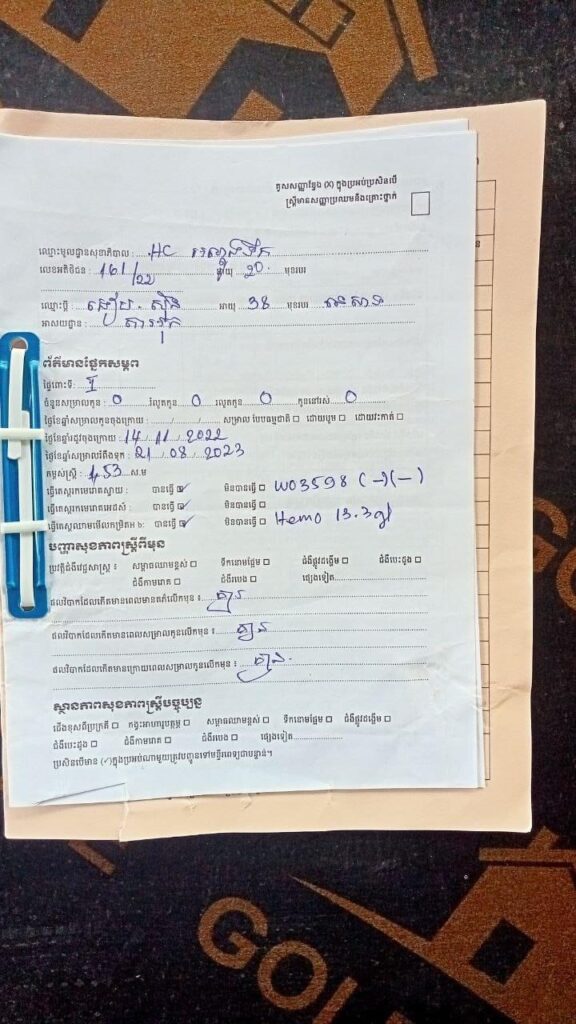 គូសសញ្ញាខ្វែង (X) ក្នុងប្រអប់ប្រសិនបើ
ស្ត្រីមានសញ្ញាប្រឈមនឹងគ្រោះថ្នាក់
ឈ្មោះមូលដ្ឋានសុខាភិបាល : HC
លេខអតិថិជន : 161/22 អាយុ 20 មុខរបរ
ឈ្មោះប្តី : អាយុ 38 មុខរបរ នេសាទ
អាសយដ្ឋាន :
ព័ត៌មានផ្នែកសម្ភព
ផ្ទៃពោះទី: I
ចំនួនសម្រាលកូន : 0 រំលូតកូន 0 រលូតកូន 0 កូននៅរស់ 0
ថ្ងៃខែឆ្នាំសម្រាលកូនចុងក្រោយ : / / សម្រាល បែបធម្មជាតិ □ ដោយបូម □ ដោយវះកាត់ □
ថ្ងៃខែឆ្នាំរដូវចុងក្រោយ : 14 / 11 / 2022
ថ្ងៃខែឆ្នាំសម្រាលរំពឹងទុក : 21 / 08 / 2023
កម្ពស់ស្ត្រី : 1,53 ស.ម
ធ្វើតេស្តរកមេរោគស្វាយ : បានធ្វើ ☑ មិនបានធ្វើ □ W03598 (-)(-)
ធ្វើតេស្តរកមេរោគអេដស៍ : បានធ្វើ ☑ មិនបានធ្វើ □
ធ្វើតេស្តឈាមមើលកម្រិតH b: បានធ្វើ ☑ មិនបានធ្វើ □ Hemo 13.3gl
បញ្ហាសុខភាពស្ត្រីពីមុន
ប្រវត្តិជំងឺវេជ្ជសាស្ត្រ : សម្ពាធឈាមខ្ពស់ □ ទឹកនោមផ្អែម □ ជំងឺផ្លូវដង្ហើម □ ជំងឺបេះដូង □
ជំងឺកាមរោគ □ ជំងឺរបេង □ ផ្សេងទៀត
ផលវិបាកដែលកើតមានពេលមានគភ៌លើកមុន : គ្មាន
ផលវិបាកដែលកើតមានពេលសម្រាលកូនលើកមុន : គ្មាន
ផលវិបាកដែលកើតមានក្រោយពេលសម្រាលកូនលើកមុន : គ្មាន
ស្ថានភាពសុខភាពស្ត្រីបច្ចុប្បន្ន
ជើងខុសពីប្រក្រតី □ កង្វះអាហារូបត្ថម្ភ □ សម្ពាធឈាមខ្ពស់ □ ទឹកនោមផ្អែម □ ជំងឺផ្លូវដង្ហើម □
ជំងឺបេះដូង □ ជំងឺកាមរោគ □ ជំងឺរបេង □ ផ្សេងទៀត
ប្រសិនបើមាន (✓)ក្នុងប្រអប់ណាមួយត្រូវបញ្ជូនទៅមន្ទីរពេទ្យជាបន្ទាន់។
GOL